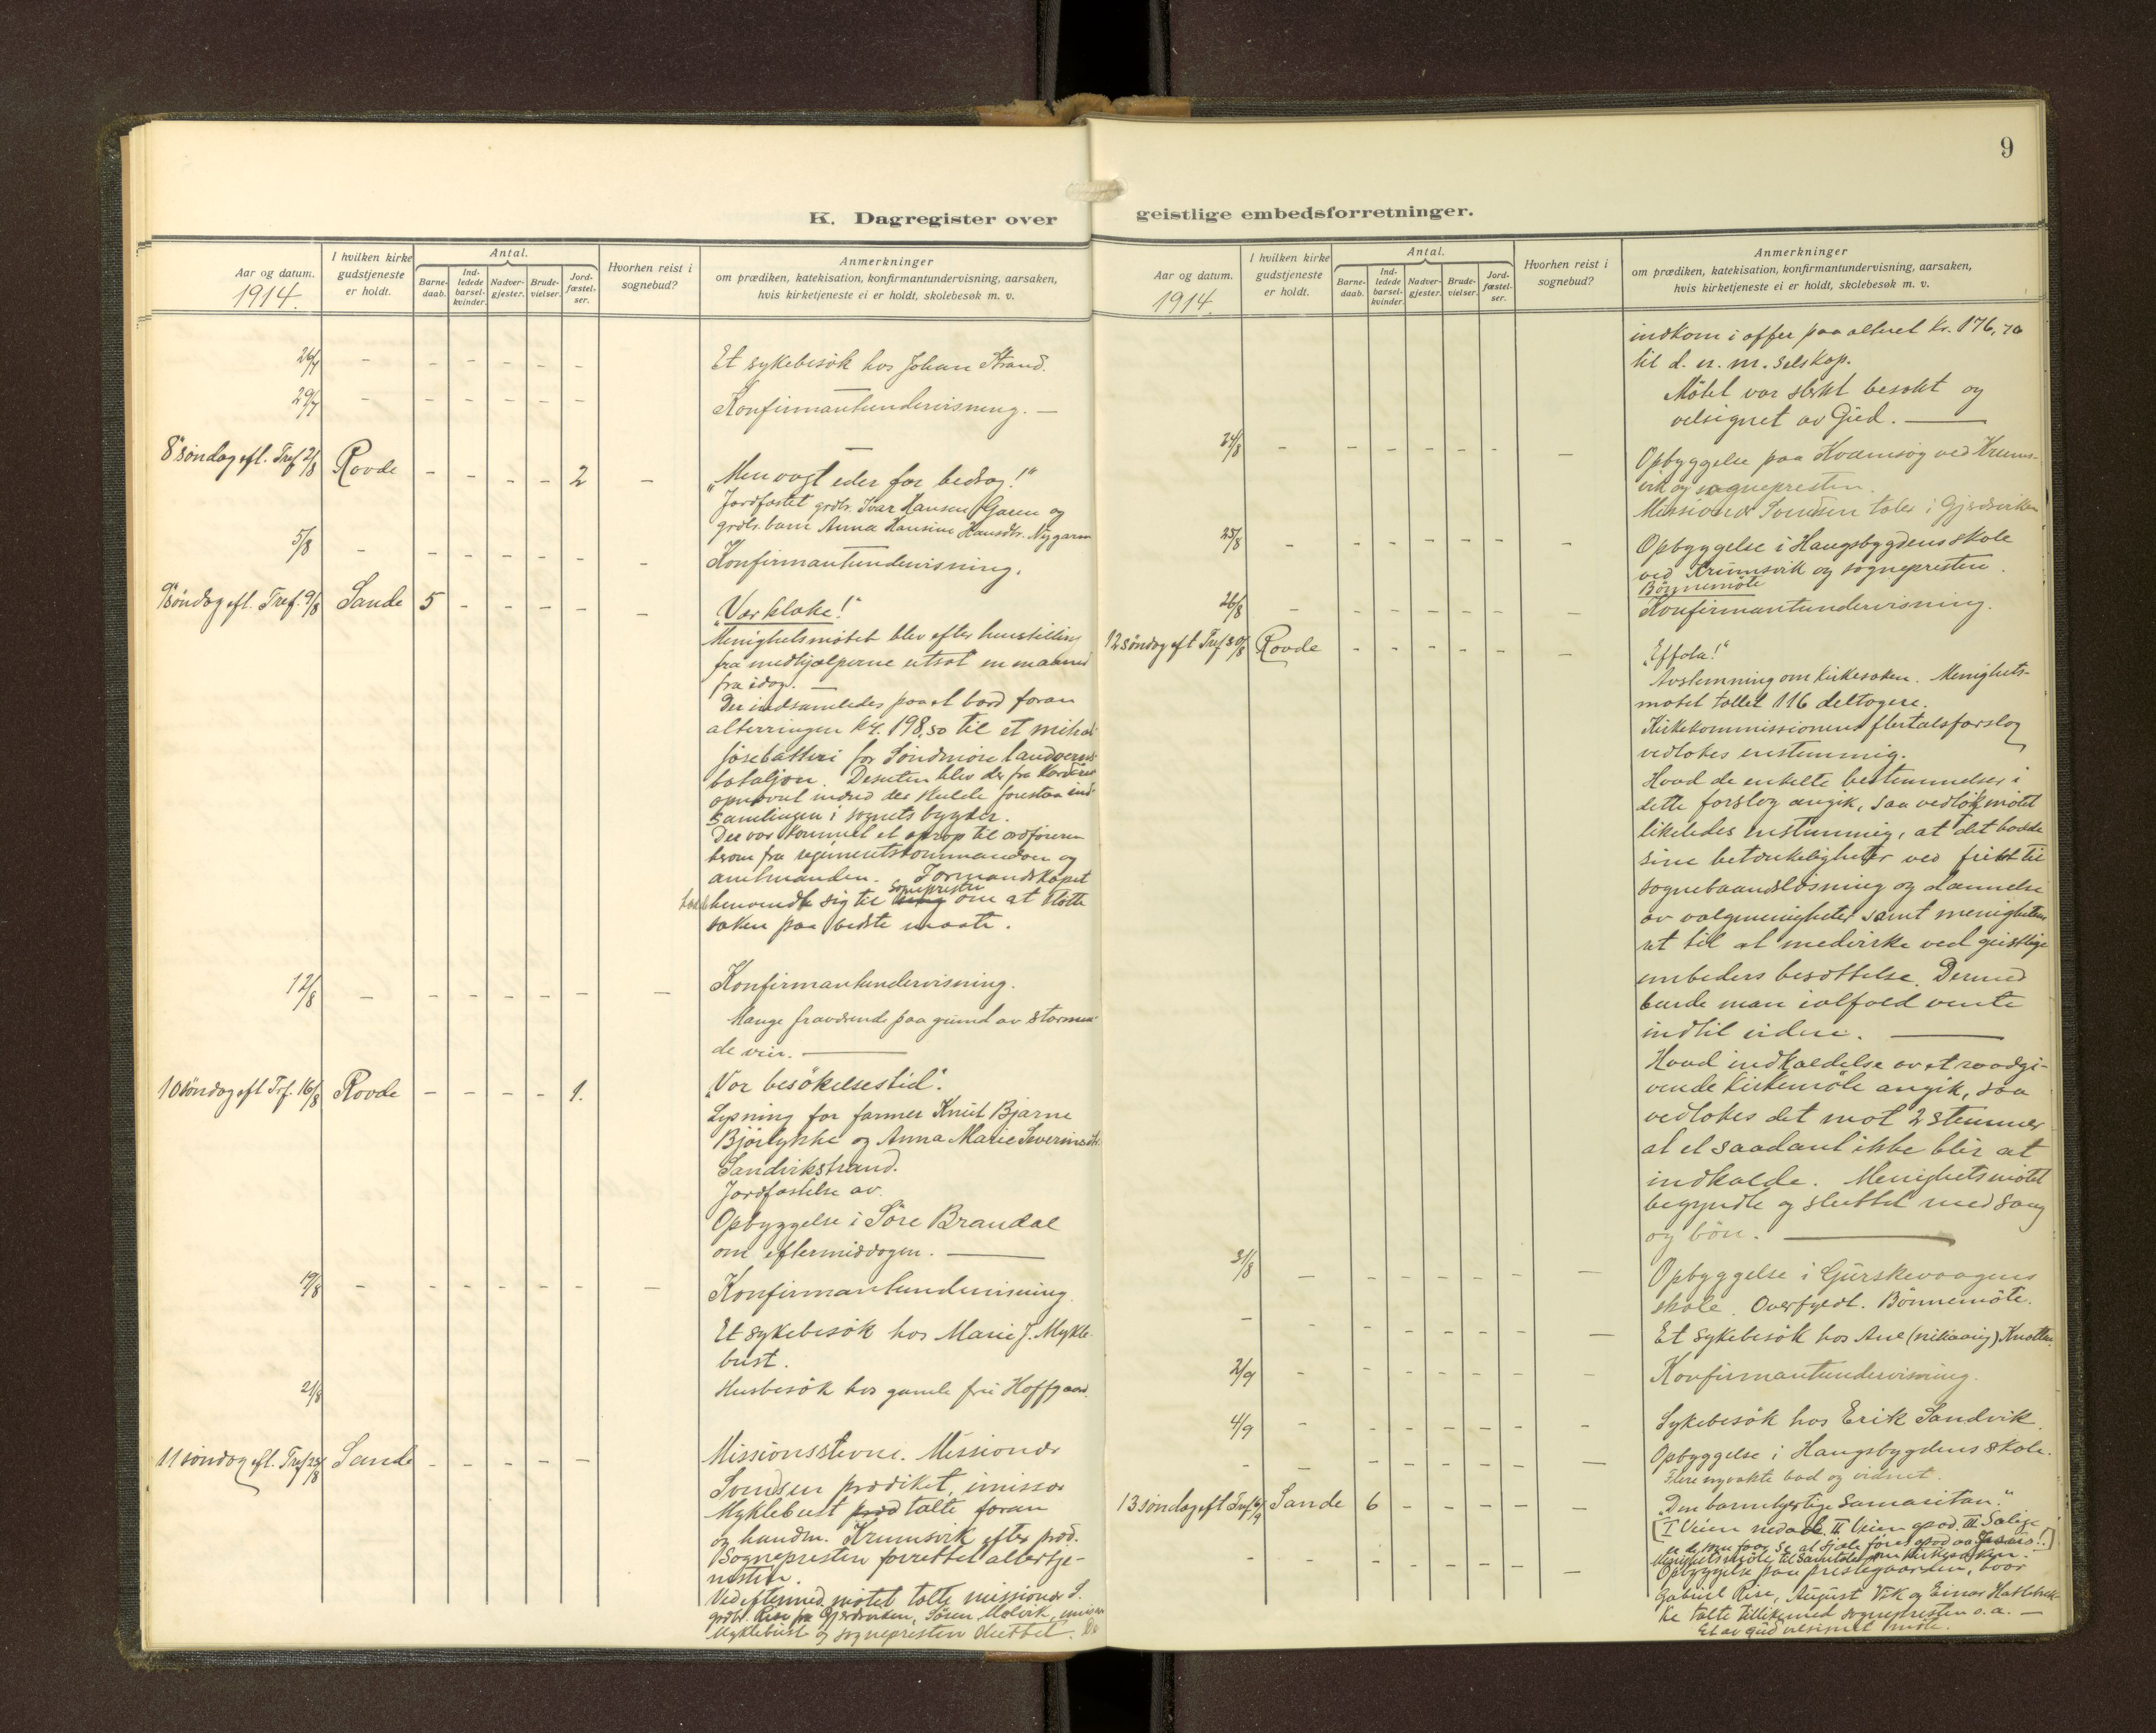 9
K. Dagregister over geistlige embedsforretninger.
Aar og datum.
1914.
I hvilken kirke gudstjeneste er holdt.
Antal.
Barne-daab.
Ind-ledede barsel-kvinder.
Nadver-gjester.
Brude-vielser.
Jord-fæstel-ser.
Hvorhen reist i sognebud?
Anmerkninger
om prædiken, katekisation, konfirmantundervisning, aarsaken,
hvis kirketjeneste ei er holdt, skolebesøk m. v.
26/7 - - - - - - Et sykebesök hos Johan Strand.
29/7 - - - - - - Konfirmantundervisning. —
8de söndag eft. Tref. 2/8 Rovde - - - - 2 - „Men vogt eder for bedrag!"
Jordfæstet grdbr. Ivar Hansen Garen og
grdbr. barn Anna Hansine Hansdtr. Nygaren
5/8 - - - - - - - Konfirmantundervisning.
9de söndag eft. Tref. 9/8 Sande 5 - - - - - „Vær kloke!"
Menighetsmötet blev efter henstilling
fra medhjælperne utsat en maaned
fra idag. —
Der indsamledes paa et bord foran
alterringen kr. 198,50 til et mitral-
jösebatteri for Söndmöre landverns
bataljon. Desuten blev der fra kordören
opnævnt mænd der skulde forestaa ind-
samlingen i sognets bygder.
Der var kommet et oprop til ordföreren
herom fra regimentskommandoen og
amtmanden. Formandskapet
hadde henvendt sig til sognepresten om at støtte
saken paa bedste maate.
12/8 - - - - - - - Konfirmantundervisning.
Mange fraværende paa grund av stormen-
de veir. —
10 söndag eft Tref. 16/8 Rovde - - - - 1. „Vor besökelsestid".
Lysning for farmer Knut Bjarne
Björlykke og Anna Marie Severinsdtr.
Sandvikstrand.
Jordfæstelse av
Opbyggelse i Söre Brandal
om eftermiddagen. —
19/8 - - - - - - - Konfirmantundervisning.
Et sykebesök hos Marie J. Mykle-
bust.
21/8 Husbesök hos gamle fru Hoffgaard.
11 söndag eft. Tref. 23/8 Sande - - - - - Missionsstevne. Missionær
Svendsen prædiket, emissær
Myklebust præd talte foran
og handm. Krumsvik efter præd.
Sognepresten forrettet altertje-
nesten.
Ved eftermid. mötet talte missionær S.
grdbr. Rise fra Gjerdsviken, Sören Molvik, emissær
Myklebust og sognepresten sluttet. Der
Aar og datum.
1914.
I hvilken kirke gudstjeneste er holdt.
Antal.
Barne-daab.
Ind-ledede barsel-kvinder.
Nadver-gjester.
Brude-vielser.
Jord-fæstel-ser.
Hvorhen reist i sognebud?
Anmerkninger
om prædiken, katekisation, konfirmantundervisning, aarsaken,
hvis kirketjeneste ei er holdt, skolebesøk m. v.
indkom i offer paa altret kr. 176,70
til d. n. m. selskap.
Mötet var sterkt besökt og
velsignet av Gud. —
24/8 - - - - - - - Opbyggelse paa Kvamsöy ved Krums-
vik og sognepresten.
Missionær Svendsen taler i Gjerdsviken
25/8 - - - - - - - Opbyggelse i Haugsbygdens skole
ved Krumsvik og sognepresten.
Bönnemöte
26/8 - - - - - - - Konfirmantundervisning.
12 söndag eft Tref 30/8 Rovde - - - - - - „Effata!"
Avstemning om kirkesaken. Menighets-
mötet tællet 116 deltagere.
Kirkekommissionens flertalsforslag
vedtokes enstemmig.
Hvad de enkelte bestemmelser i
dette forslag angik, saa vedtok mötet
likeledes enstemmig, at det hadde
sine betænkeligheter ved frihet til
sognebaandslösning og dannelse
av valgmenigheter samt menighetens
ret til at medvirke ved geistlige
embeders besættelse. Dermed
burde man ialfald vente
indtil videre. —
Hvad indkaldelse av et raadgi-
vende kirkemöte angik, saa
vedtokes det mot 2 stemmer
at et saadant ikke blir at
indkalde. Menighetsmötet
begyndte og sluttet med sang
og bön. —
31/8 - - - - - - - Opbyggelse i Gurskevaagens
skole. Overfyldt. Bönnemöte.
- - - - - - - Et sykebesök hos Ane (nitiaarig) Knotten.
2/9 - - - - - - - Konfirmantundervisning.
4/9 - - - - - - - Sykebesök hos Erik Sandvik.
- - - - - - - - Opbyggelse i Haugsbygdens skole.
Flere nyvakte bad og vidnet.
13 söndag eft Tref 6/9 Sande 6 - - - - - „Den barmhjertige Samaritan."
[I Veien nedad. II Veien opad. III Salige
er de som faar se at sjæle föres opad
Menighetsmöte til samtale om kirkesaken.
- - - - - - Opbyggelse paa prestegaarden, hvor
Gabriel Rise, August Vik og Einar Hakleb
ke talte tillikemed sognepresten o.a. —
Et av Gud velsignet möte.